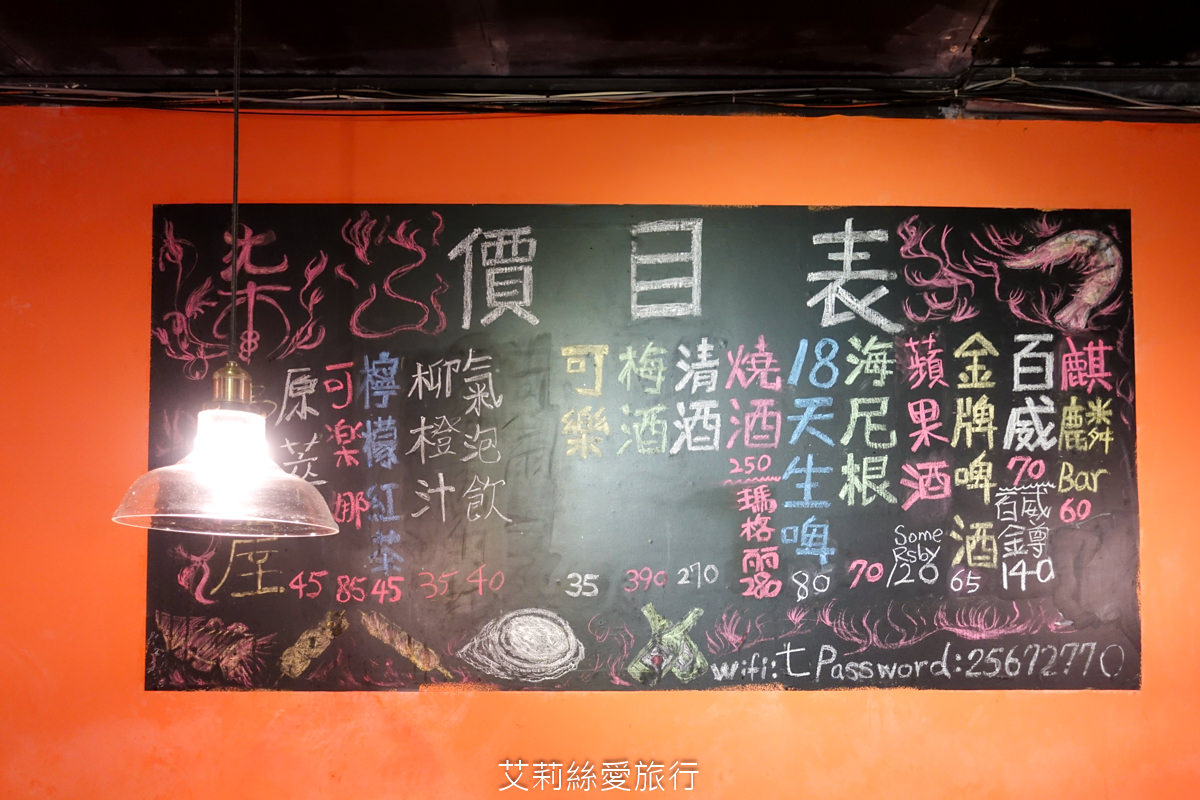 價目表
麒麟Bar
60
百威
70
百威金罇
140
金牌啤酒
65
蘋果酒
70
Some
Rsby
120
海尼根
18天生啤
80
燒酒
250
瑪格麗
280
清酒
270
梅酒
390
可樂
35
氣泡飲
40
柳橙汁
35
檸檬紅茶
45
可樂娜
85
原萃
45
wifi:七 Password:25672770
艾莉絲愛旅行